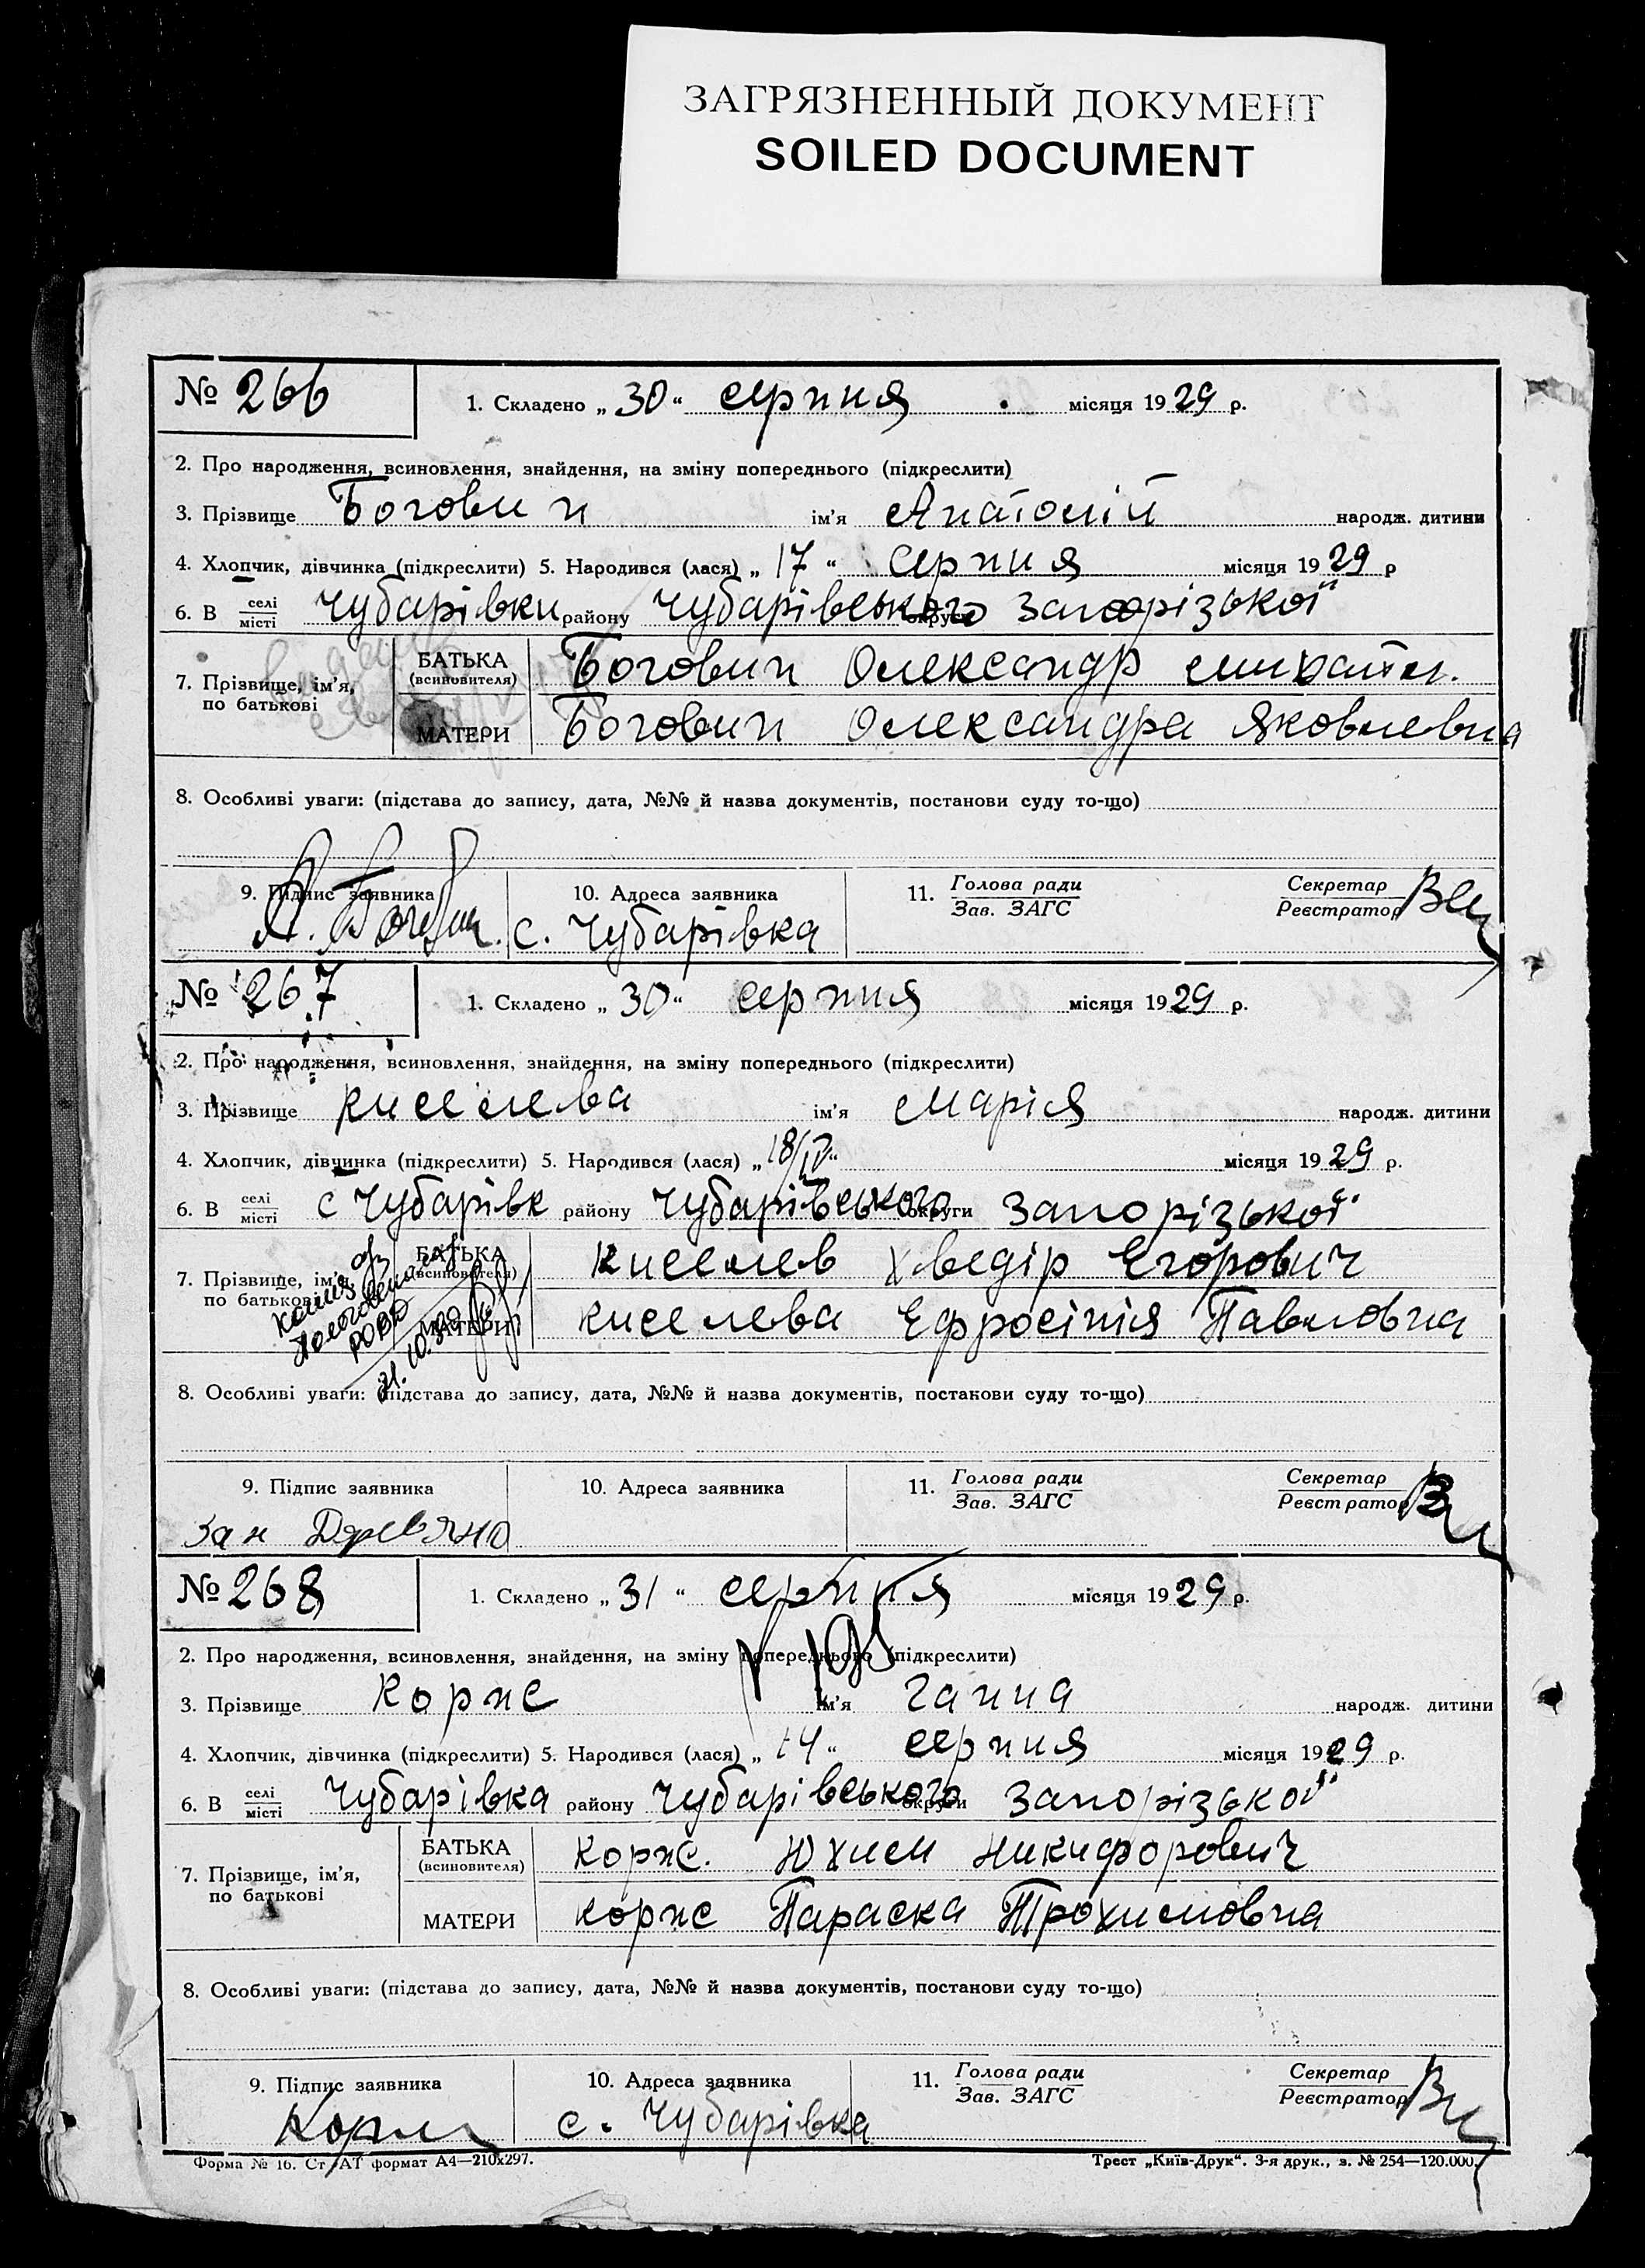 ЗАГРЯЗНЕННЫЙ ДОКУМЕНТ
SOILED DOCUMENT
№ 266
1. Складено „ 30 “ серпня місяця 1929 р.
2. Про народження, всиновлення, знайдення, на зміну попереднього (підкреслити)
3. Прізвище Боговин ім’я Анатолій народж. дитини
4. Хлопчик, дівчинка (підкреслити) 5. Народився (лася) „ 17 “ серпня місяця 1929 р
6. В селі місті Чубарівки району Чубарівського округи Запорізької
7. Прізвище, ім’я, по батькові
БАТЬКА (всиновителя) Боговин Олександр Михайл.
МАТЕРИ Боговин Олександра Яковлевна
8. Особливі уваги: (підстава до запису, дата, №№ й назва документів, постанови суду то-що)
9. Підпис заявника 10. Адреса заявника 11. Голова ради Зав. ЗАГС Секретар Реєстратор
с. Чубарівка
№ 267
1. Складено „ 30 “ серпня місяця 1929 р.
2. Про народження, всиновлення, знайдення, на зміну попереднього (підкреслити)
3. Прізвище Киселева ім’я Марія народж. дитини
4. Хлопчик, дівчинка (підкреслити) 5. Народився (лася) „ 18/IV “ місяця 1929 р.
6. В селі місті с Чубарівк району Чубарівського округи Запорізької
7. Прізвище, ім’я, по батькові
БАТЬКА (всиновителя) Киселев Хведір Егорович
МАТЕРИ Киселева Ефросінія Павловна
8. Особливі уваги: (підстава до запису, дата, №№ й назва документів, постанови суду то-що)
9. Підпис заявника 10. Адреса заявника 11. Голова ради Зав. ЗАГС Секретар Реєстратор
№ 268
1. Складено „ 31 “ серпня місяця 1929 р.
2. Про народження, всиновлення, знайдення, на зміну попереднього (підкреслити)
3. Прізвище Корж ім’я Ганна народж. дитини
4. Хлопчик, дівчинка (підкреслити) 5. Народився (лася) „ 14 “ серпня місяця 1929 р.
6. В селі місті Чубарівка району Чубарівського округи Запорізької
7. Прізвище, ім’я, по батькові
БАТЬКА (всиновителя) Корж. Юхим Никифорович
МАТЕРИ Корж Параска Трохимовна
8. Особливі уваги: (підстава до запису, дата, №№ й назва документів, постанови суду то-що)
9. Підпис заявника 10. Адреса заявника 11. Голова ради Зав. ЗАГС Секретар Реєстратор
Корж с. Чубарівка
Форма № 16. Ст. АТ формат А4—210х297. Трест „Київ-Друк“. 3-я друк., з. № 254—120.000.